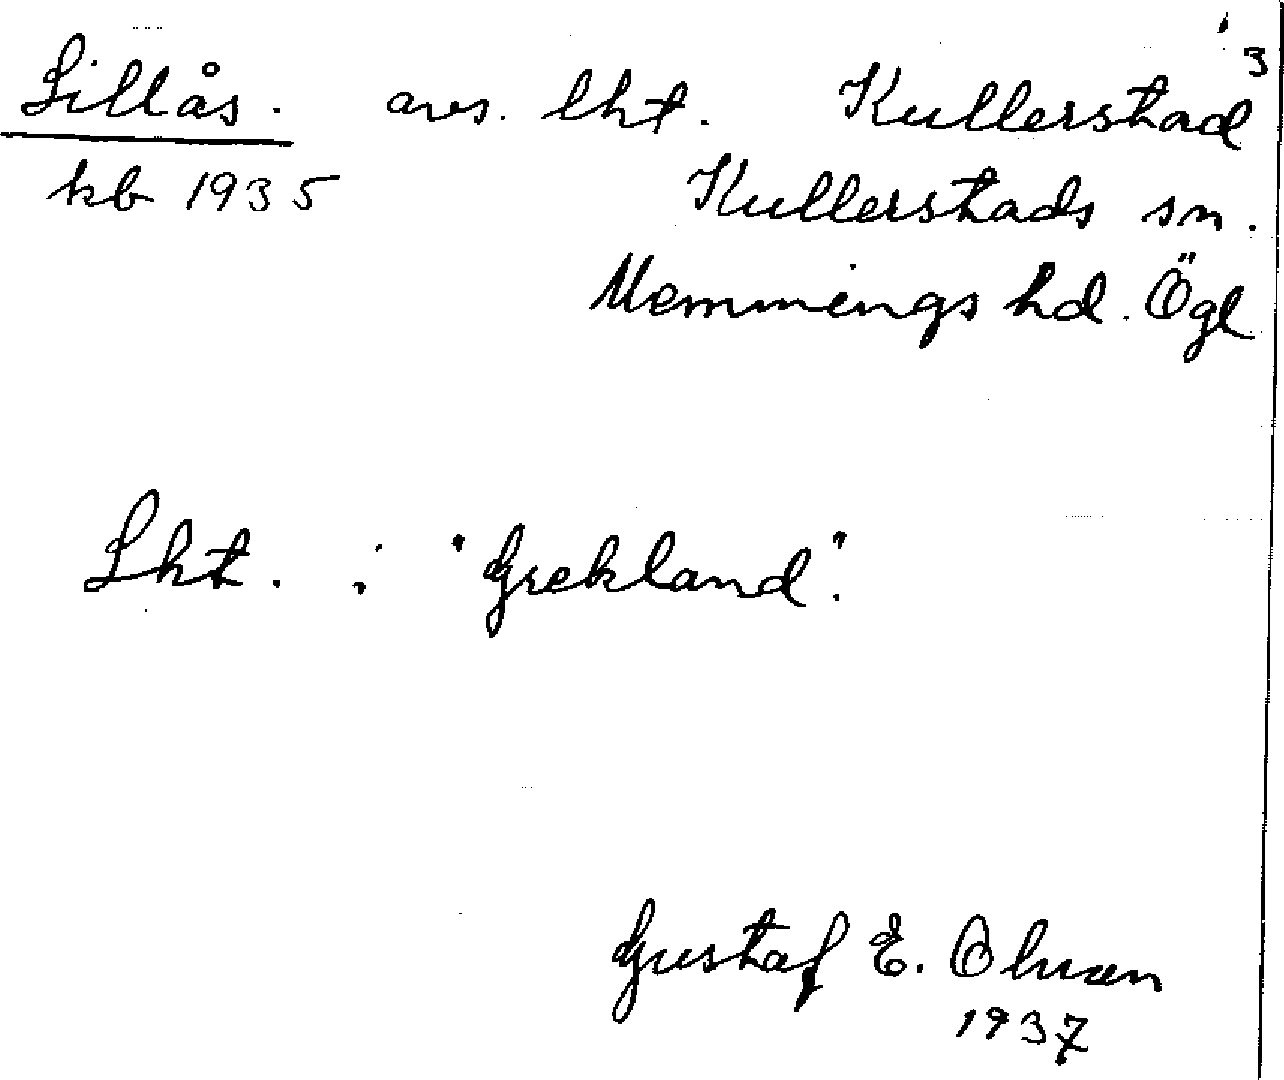 3
Lillås. avs. lht. Kullerstad
kb 1935 Kullerstads sn.
Memmings hd. Ögl
Lht. i "Grekland".
Gustaf E. Olsson
1937